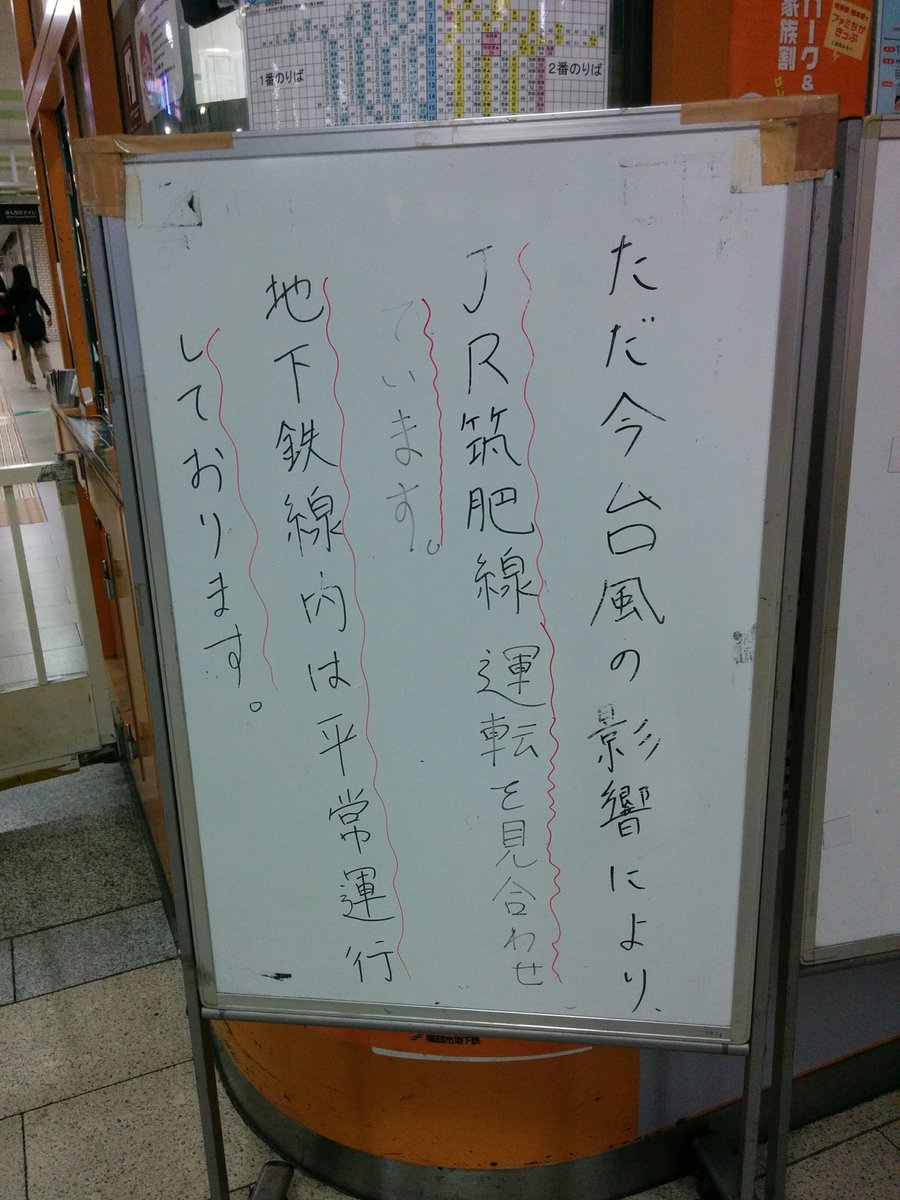 ただ今台風の影響により、
JR筑肥線運転を見合わせ
ています。
地下鉄線内は平常運行
しております。
1番のりば
2番のりば
家族割
ファミちか
きっぷ
みんなのトイレ
福岡市地下鉄